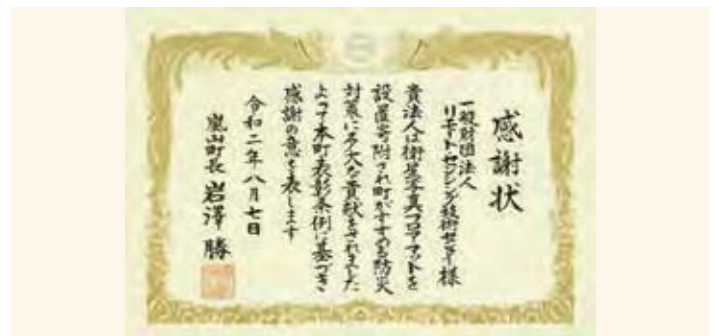 感謝状
一般財団法人
リモート・センシング技術センター様
貴法人は衛星写真フロアマットを
設置寄附され町がすすめる防災
対策に多大な貢献をされました
よって本町表彰条例に基づき
感謝の意を表します
令和二年八月七日
嵐山町長 岩澤 勝